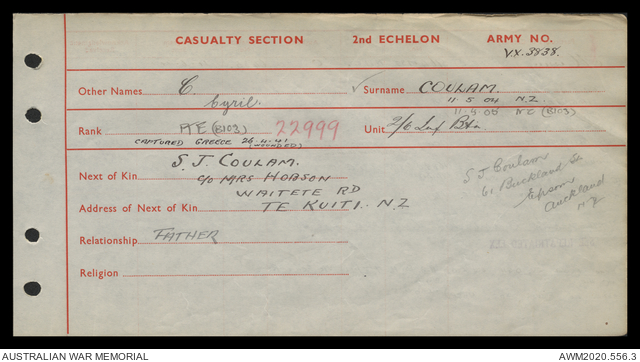 CASUALTY SECTION 2nd ECHELON ARMY NO.
VX.3838.
Other Names C. ✓ Surname COULAM.
Cyril. 11.5.04 N.Z.
11.5.05 NZ (B103)
Rank PTE (B103) 22999 Unit 2/6 Inf Btn
CAPTURED GREECE 26.4.41
(WOUNDED)
S.J. COULAM.
Next of Kin C/O MRS HOBSON
WAITETE RD
Address of Next of Kin TE KUITI. N.Z
S J Coulam
61 Buckland St
Epsom
Auckland
N.Z
Relationship FATHER
Religion
AUSTRALIAN WAR MEMORIAL AWM2020.556.3